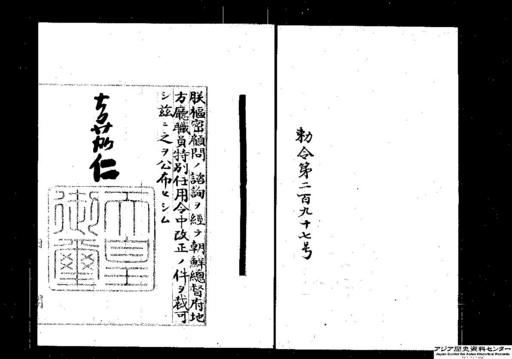 勅令第二百九十七号
朕枢密顧問ノ諮詢ヲ経テ朝鮮総督府地
方庁職員特別任用令中改正ノ件ヲ裁可
シ茲ニ之ヲ公布セシム
嘉仁
天皇御璽
アジア歴史資料センター
Japan Center for Asian Historical Records